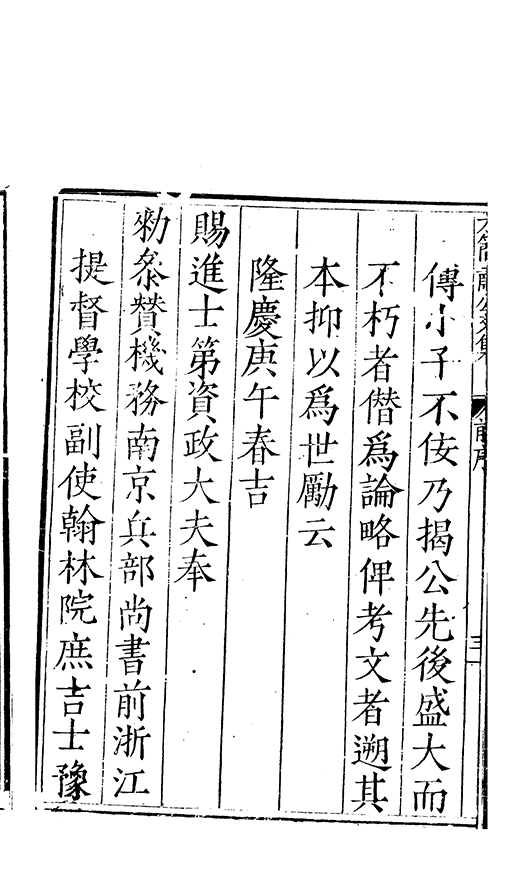 傳小子不佞乃揭公先後盛大而
不朽者僭爲論略俾考文者遡其
本抑以爲世勵云
隆慶庚午春吉
賜進士第資政大夫奉
勑叅贊機務南京兵部尚書前浙江
提督學校副使翰林院庶吉士豫